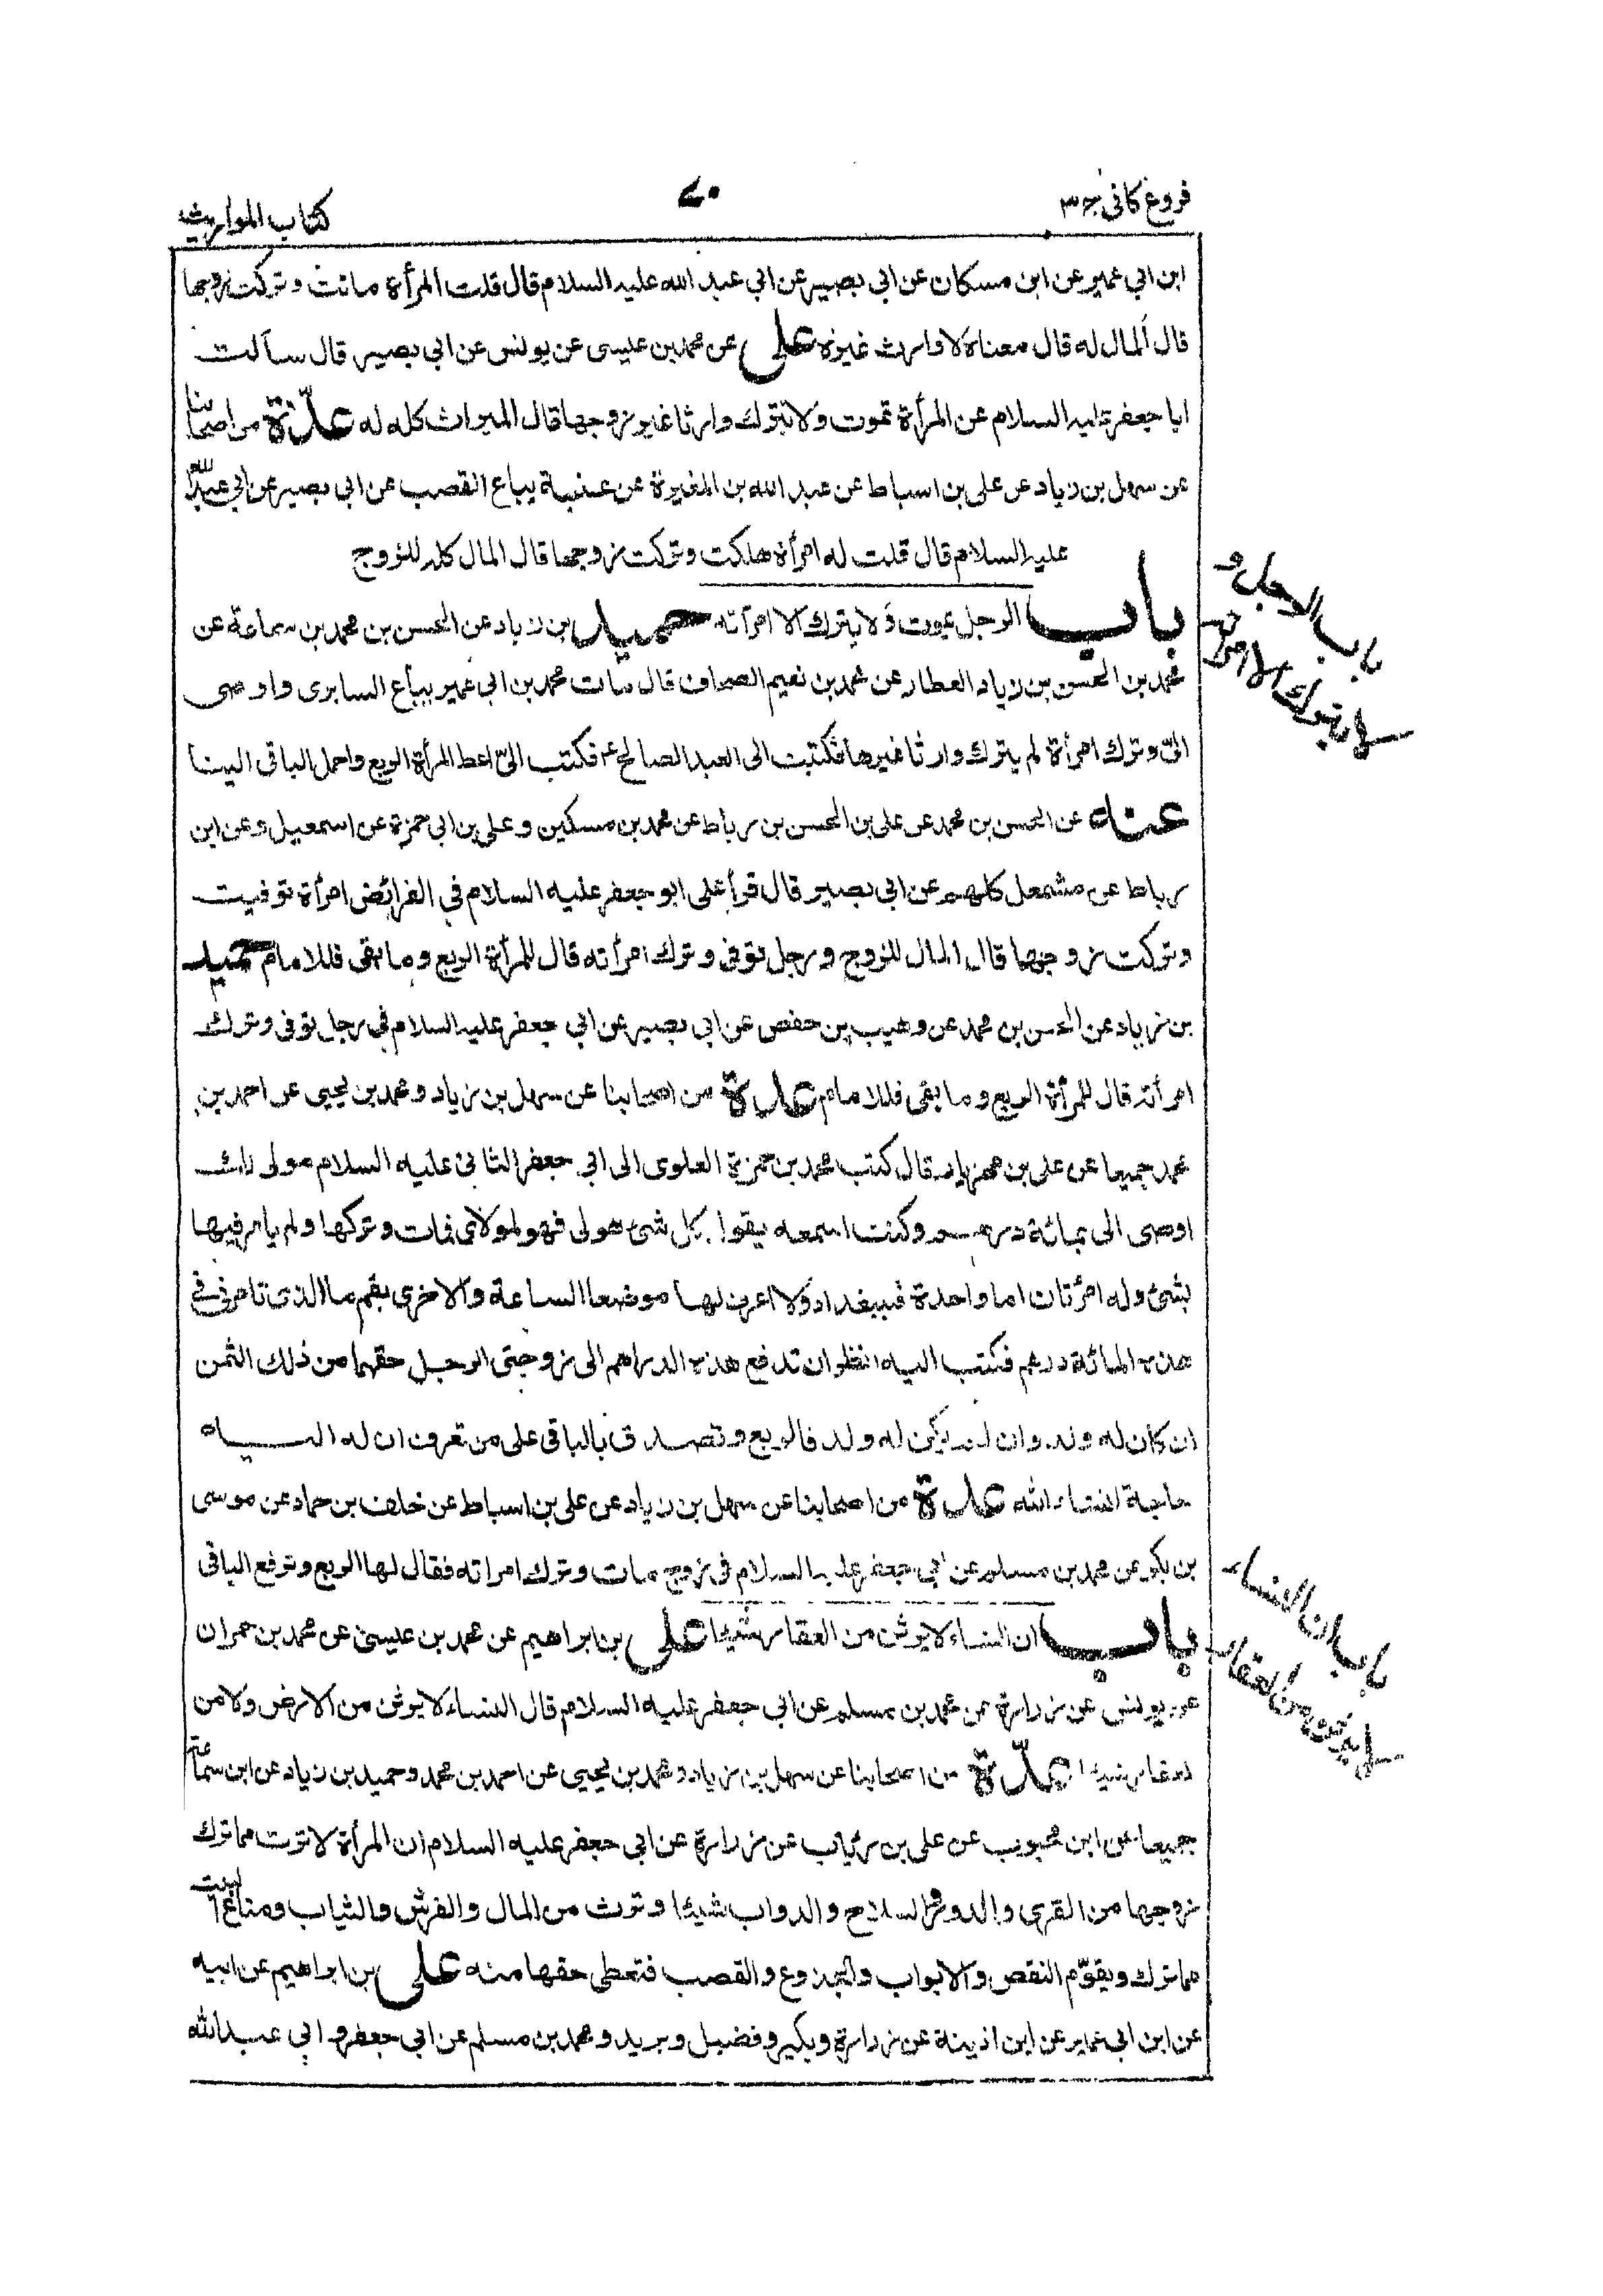 فروع كافى ج ٣
٧٠
كتاب المواريث
ابن ابي عمير عن ابن مسكان عن ابي بصير عن ابي عبد الله عليه السلام قال قلت المرأة ماتت وتركت زوجها
قال المال له قال معناه لا وارث غيره علي عن محمد بن عيسى عن يونس عن ابي بصير قال سألت
ابا جعفر عليه السلام عن المرأة تموت ولا تترك وارثا غير زوجها قال الميراث كله له عدّة من اصحابنا
عن سهل بن زياد عن علي بن اسباط عن عبد الله بن المغيرة عن عنبسة بياع القصب عن ابي بصير عن ابي عبد الله
عليه السلام قال قلت له امرأة هلكت وتركت زوجها قال المال كله للزوج
باب الرجل يموت ولا يترك الا امرأته حميد بن زياد عن الحسن بن محمد بن سماعة عن
محمد بن الحسن بن زياد العطار عن محمد بن نعيم الصحاف قال مات محمد بن ابي عمير بياع السابرى واوصى
الىّ وترك امرأة لم يترك وارثا غيرها فكتبت الى العبد الصالح ع فكتب الىّ اعط المرأة الربع واحمل الباقى الينا
عنه عن الحسن بن محمد عن علي بن الحسن بن رباط عن محمد بن مسكين وعلي بن ابي حمزة عن اسمعيل وعن ابن
رباط عن مشمعل كلهم عن ابي بصير قال قرأ على ابو جعفر عليه السلام في الفرائض امرأة توفيت
وتركت زوجها قال المال للزوج ورجل توفى وترك امرأته قال للمرأة الربع وما بقى فللامام حميد
بن زياد عن الحسن بن محمد عن وهيب بن حفص عن ابي بصير عن ابي جعفر عليه السلام في رجل توفى وترك
امرأته قال للمرأة الربع وما بقى فللامام عدة من اصحابنا عن سهل بن زياد ومحمد بن يحيى عن احمد بن
محمد جميعا عن علي بن مهزيار قال كتب محمد بن حمزة العلوى الى ابي جعفر الثانى عليه السلام مولى لك
اوصى الى بمائة درهم وكنت اسمعه يقول كل شئ هو لى فهو لمولاى فمات وتركها ولم يامر فيها
بشئ وله امرئتان اما واحدة فببغداد ولا اعرف لها موضعا الساعة والاخرى بقم ما الذى تامرنى فى
هذه المائة درهم فكتب اليه انظر ان تدفع هذه الدراهم الى زوجتى الرجل حقهما من ذلك الثمن
ان كان له ولد وان لم يكن له ولد فالربع وتصدق بالباقى على من تعرف ان له اليه
حاجة انشاء الله عدة من اصحابنا عن سهل بن زياد عن علي بن اسباط عن خلف بن حماد عن موسى
بن بكر عن محمد بن مسلم عن ابي جعفر عليه السلام فى زوج مات وترك امراته فقال لها الربع وترفع الباقى
باب ان النساء لا يرثن من العقار شيئا علي بن ابراهيم عن محمد بن عيسى عن محمد بن حمران
عن يونس عن زرارة عن محمد بن مسلم عن ابي جعفر عليه السلام قال النساء لا يرثن من الارض ولا من
العقار شيئا عدّة من اصحابنا عن سهل بن زياد ومحمد بن يحيى عن احمد بن محمد وحميد بن زياد عن ابن سماعة
جميعا عن ابن محبوب عن علي بن رئاب عن زرارة عن ابي جعفر عليه السلام ان المرأة لا ترث مما ترك
زوجها من القرى والدور والسلاح والدواب شيئا وترث من المال والفرش والثياب ومتاع البيت
مما ترك ويقوّم النقض والابواب والجذوع والقصب فتعطى حقها منه علي بن ابراهيم عن ابيه
عن ابن ابي عمير عن ابن اذينة عن زرارة وبكير وفضيل وبريد ومحمد بن مسلم عن ابي جعفر وابي عبد الله
باب الرجل و
لا يترك الا امرأته
باب ان النساء
لا يرثن من العقار